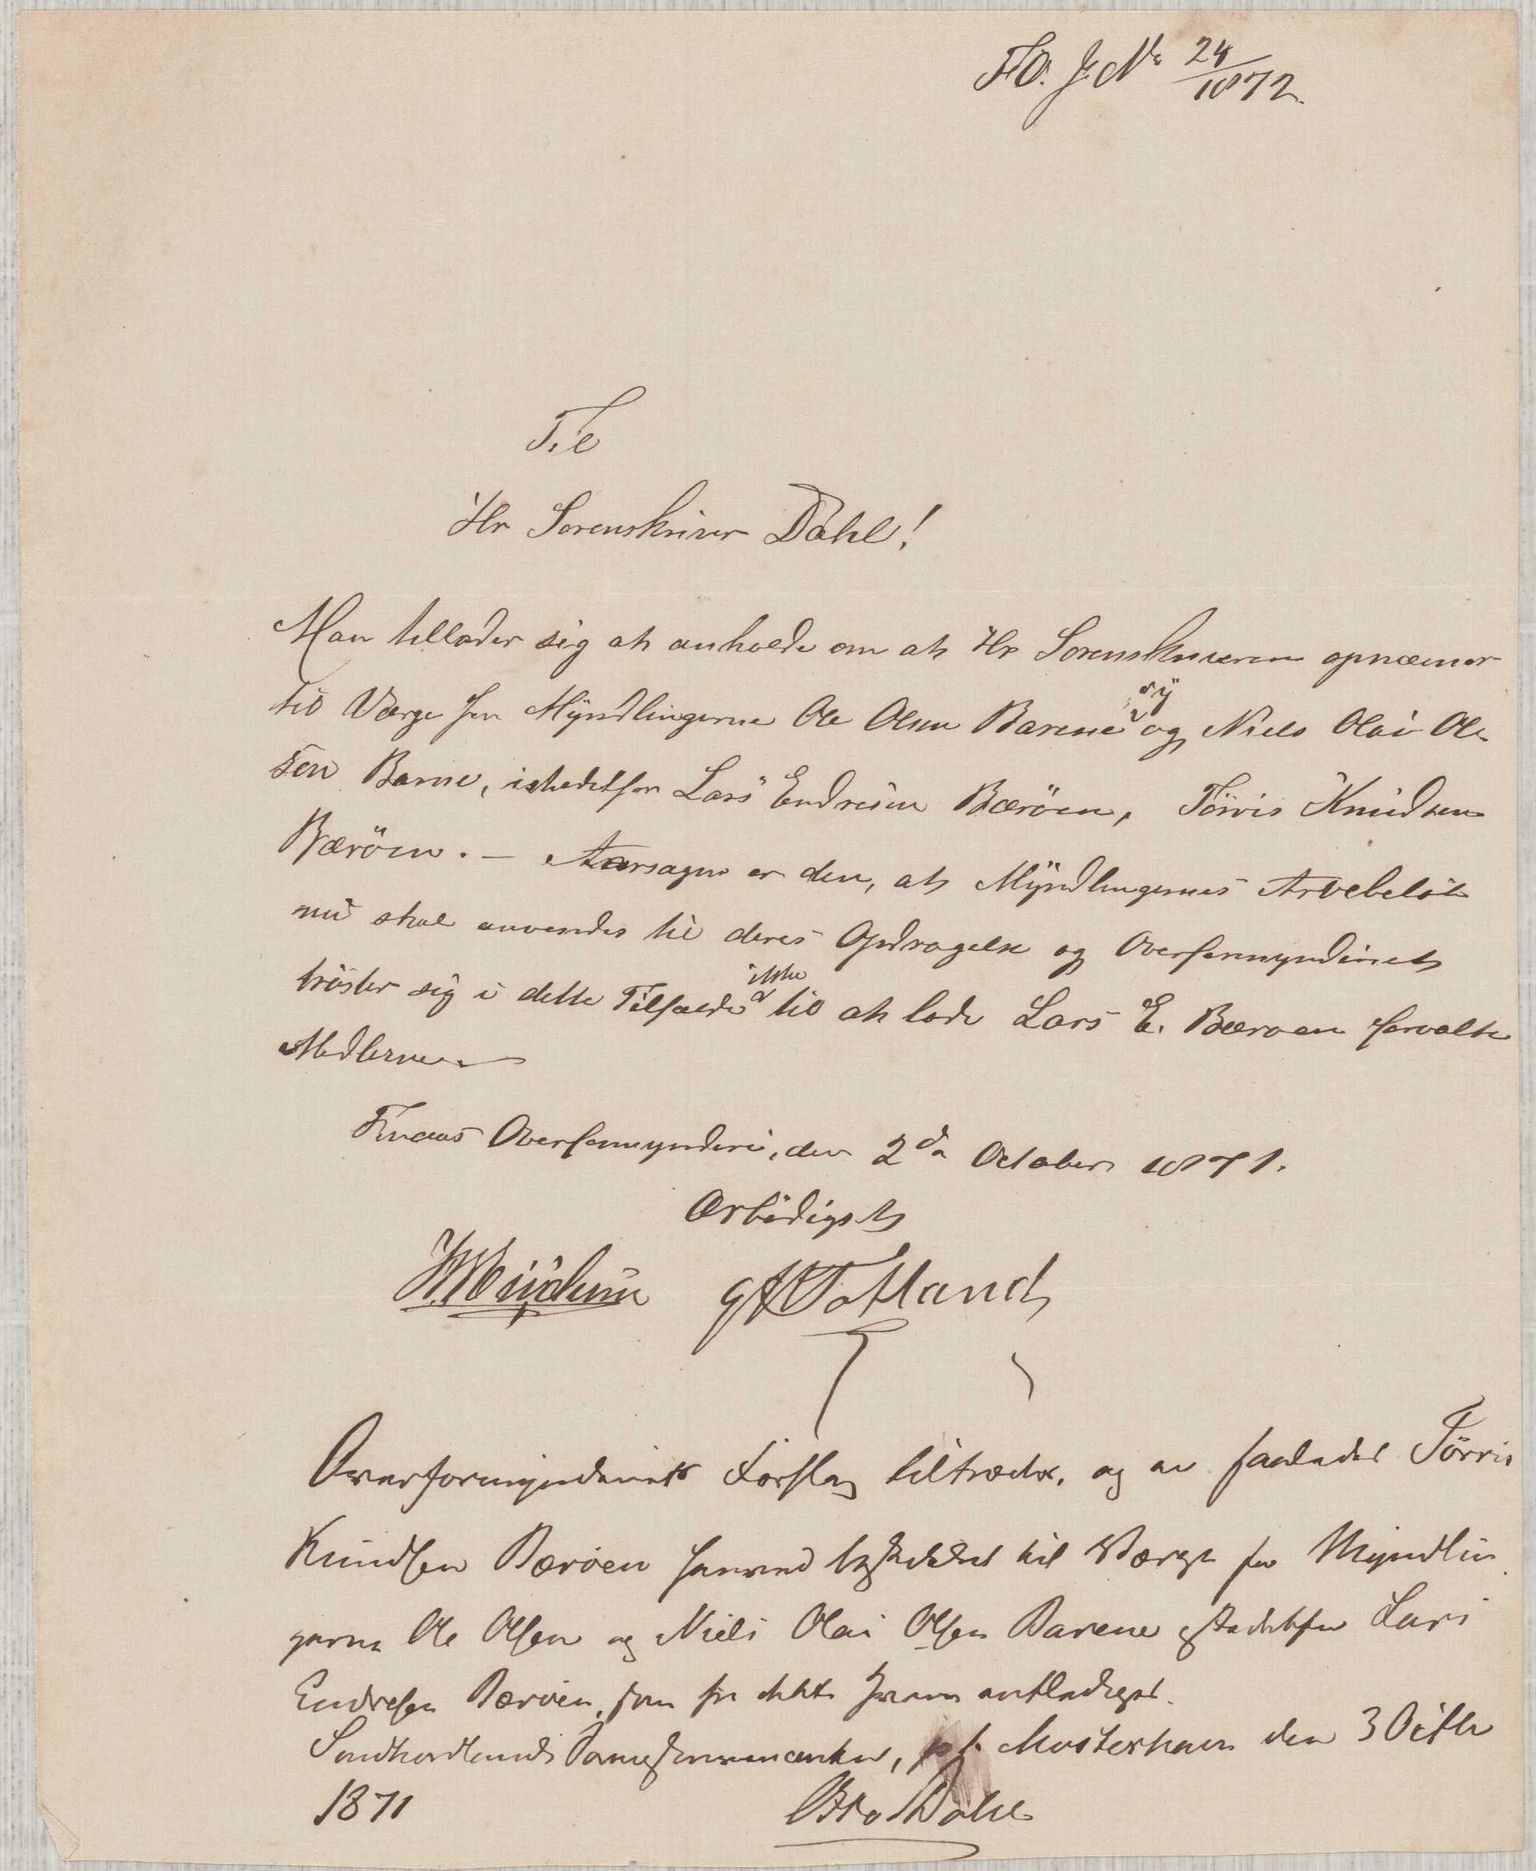 FO. J. No 24/1872.
Til
Hr Sorenskriver Dahl!
Man tillader sig at anholde om at Hr Sorenskriveren opnævner
til Værge for Myndlingerne Ole Olsen Barene og Niels Olai Ol-
sen Barne, istedetfor Lars Endresen Bæröen, Törris Knudsen
Bæröen. — Aarsagen er den, at Myndlingernes Arvebelöb
nu skal anvendes til deres Opdragelse og Overformynderiet
tröster sig i dette Tilfælde ikke til at lade Lars E. Bæroen forvalte
Midlerne.
Finaas Overformynderi, den 2den October 1871.
Ærbödigst
G A Totland
Overformynderiets Forslag tiltrædes, og er saaledes Törris
Knudsen Bæröen herved beskikket til Værge for Myndlin
gerne Ole Olsen og Niels Olai Olsen Barene istedetfor Lars
Endresen Bæröen, som fra dette Hverv entlediges.
Söndhordlands Sorenskriverembede, p.t. Mosterhavn den 3 Octbr
1871
Otto Dahl